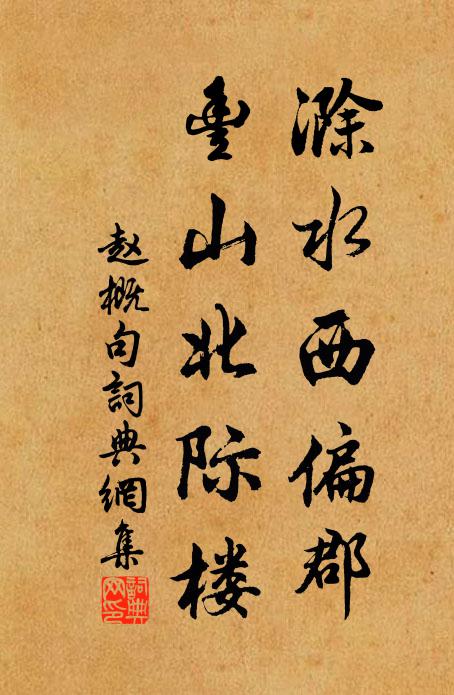 滁水西偏郡
豊山北际楼
赵概句詞典網集
詞典网印